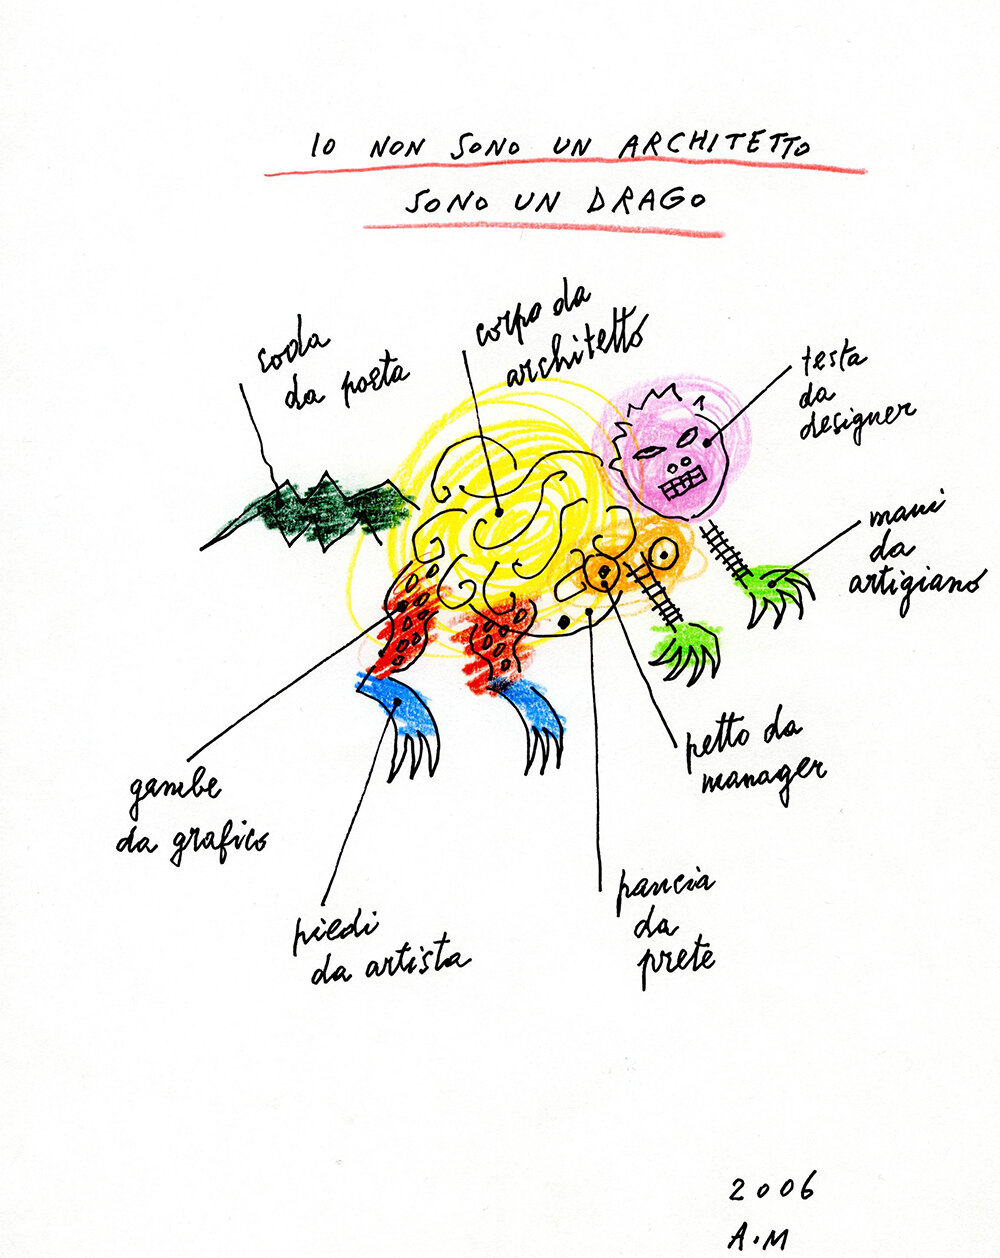 IO NON SONO UN ARCHITETTO
SONO UN DRAGO
coda
da poeta
corpo da
architetto
testa
da
designer
mani
da
artigiano
petto da
manager
pancia
da
prete
piedi
da artista
gambe
da grafico
2006
A.M